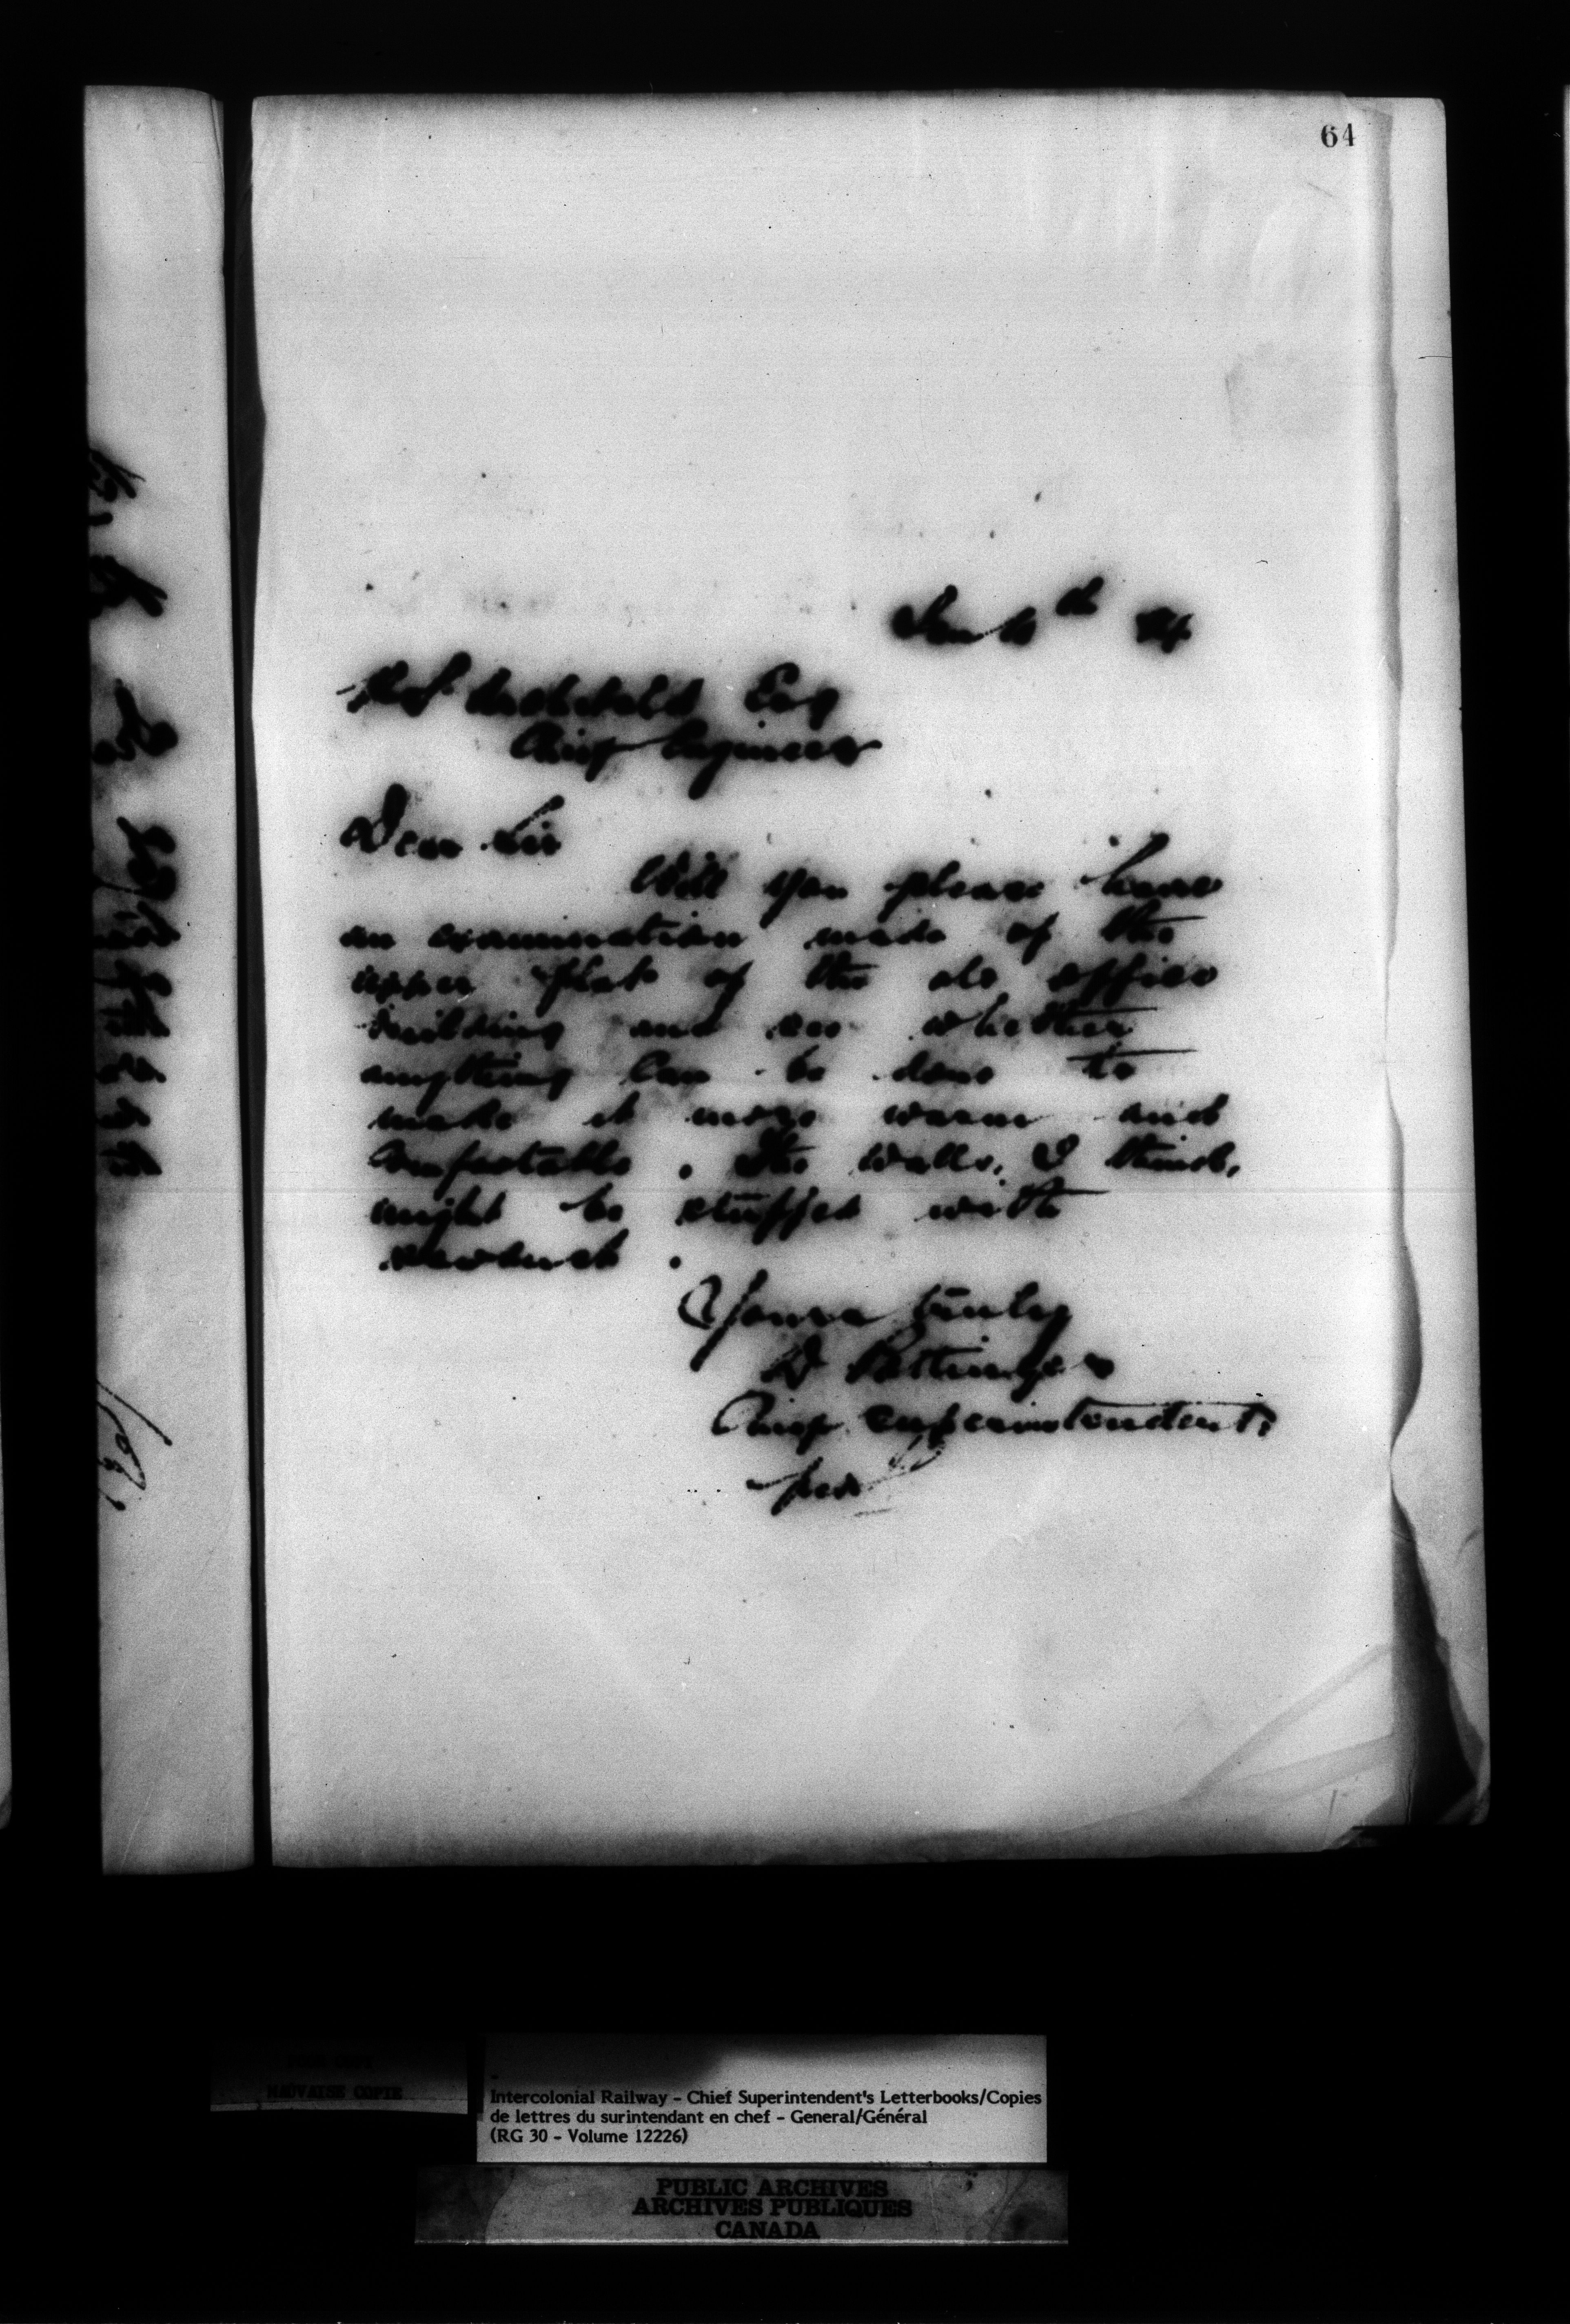 64
Jan 4th 84
P. S. Archibald Esq
Chief Engineer
Dear Sir
Will you please have
an examination made of the
upper flat of the old office
building and see whether
anything can be done to
make it more warm and
comfortable . The walls, I think,
might be stuffed with
sawdust .
Yours truly
D Pottinger
Chief Superintendent.
per
MAUVAISE COPIE
Intercolonial Railway - Chief Superintendent's Letterbooks/Copies
de lettres du surintendant en chef - General/Général
(RG 30 - Volume 12226)
PUBLIC ARCHIVES
ARCHIVES PUBLIQUES
CANADA